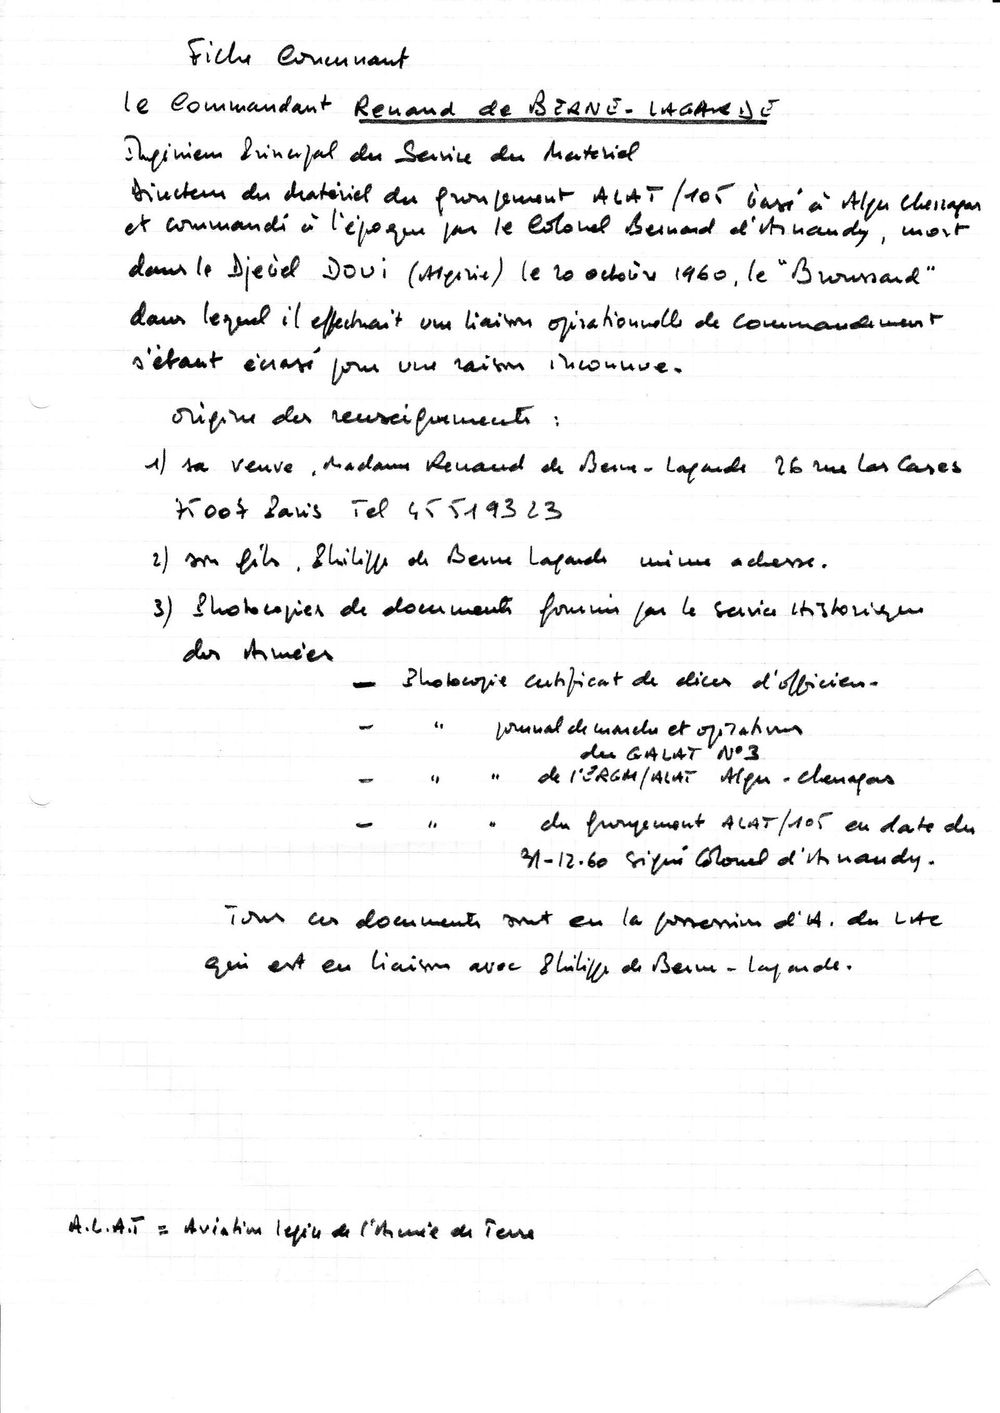 Fiche Concernant
le Commandant Renaud de BERNE-LAGARDE
Ingénieur Principal du Service du Matériel
Directeur du Matériel du groupement ALAT/105 basé à Alger Cheragas
et commandé à l'époque par le Colonel Bernard d'Arnaudy, mort
dans le Djebel DOUI (Algérie) le 20 octobre 1960, le "Broussard"
dans lequel il effectuait une liaison opérationnelle de commandement
s'étant écrasé pour une raison inconnue.
Origine des renseignements :
1) sa veuve, Madame Renaud de Berne-Lagarde 26 rue Las Cases
75007 Paris Tel 45519323
2) son fils, Philippe de Berne Lagarde même adresse.
3) Photocopies de documents fournis par le Service Historique
des Armées
— Photocopie certificat de décès d'officier.
— " journal de marche et opérations
du GALAT N°3
— " " de l'ERGM/ALAT Alger-Cheragas
— " " du groupement ALAT/105 en date du
31-12.60 signé Colonel d'Arnaudy.
Tous ces documents sont en la possession d'A. du LAC
qui est en liaison avec Philippe de Berne-Lagarde.
A.L.A.T = Aviation légère de l'Armée de Terre